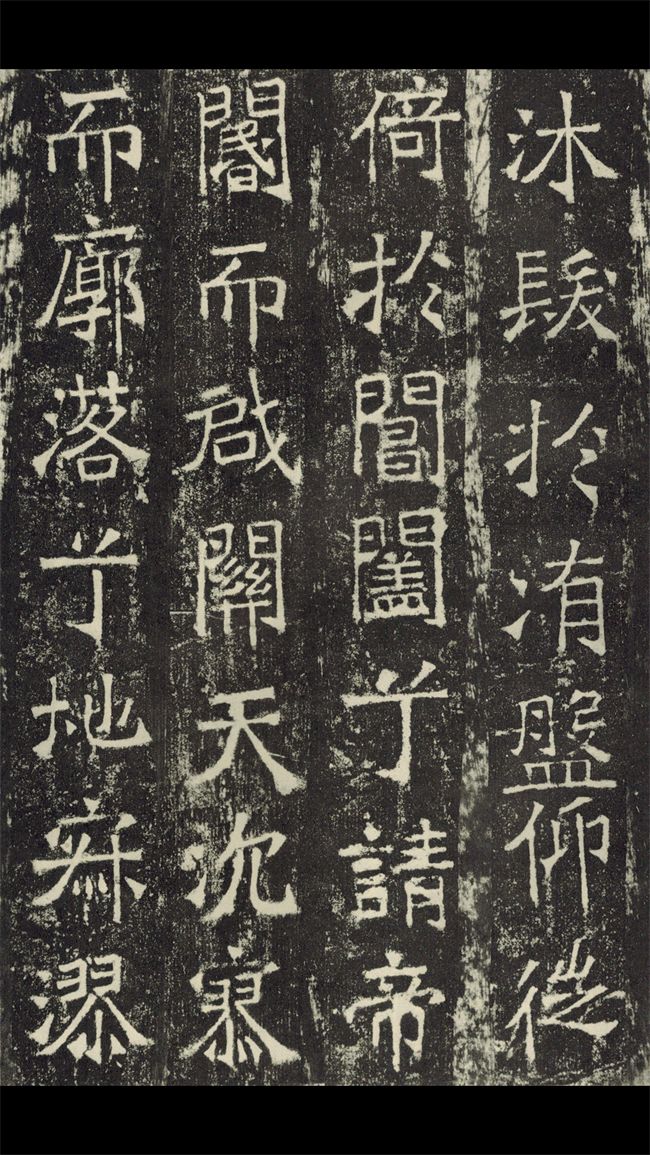 沐髮於洧盤仰徙
倚於閶闔兮請帝
閽而啟關天泬寥
而廓落兮地寂漻